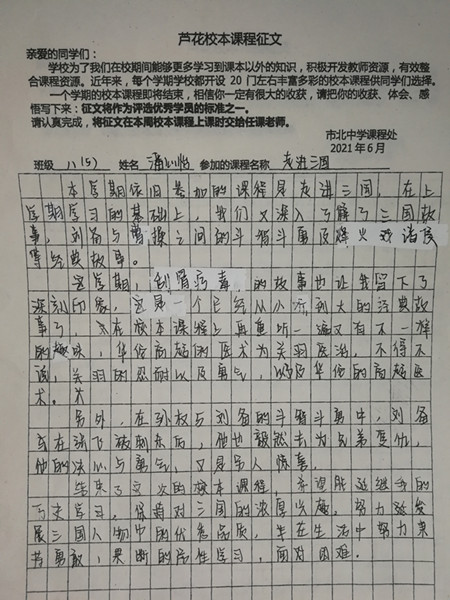 芦花校本课程征文
亲爱的同学们：
学校为了我们在校期间能够更多学习到课本以外的知识，积极开发教师资源，有效整
合课程资源。近年来，每个学期学校都开设 20 门左右丰富多彩的校本课程供同学们选择。
一个学期的校本课程即将结束，相信你一定有很大的收获，请把你的收获、体会、感
悟写下来；征文将作为评选优秀学员的标准之一。
请认真完成，将征文在本周校本课程上课时交给任课老师。
市北中学课程处
2021 年 6 月
班级 八(5) 姓名 蒲心怡 参加的课程名称 走进三国
本学期依旧参加的课程是走进三国，在上
学期学习的基础上，我们又深入了解了三国故
事，刘备与曹操之间的斗智斗勇及烽火戏诸侯
等经典故事。
这学期，刮骨疗毒，的故事也让我留下了
深刻印象，这是一个已经从小听到大的经典故
事了，在校本课程上再重听一遍又有不一样
的趣味，华佗高超的医术为关羽医治，不得不
说，关羽的忍耐以及勇气，以及华佗的高超医
术。
另外，在孙权与刘备的斗智斗勇中，刘备
在张飞被刺杀后，他也毅然去为兄弟复仇，
他的决心与勇气，又是令人惊喜。
结束了这次的校本课程，希望能继续我的
历史学习，保持对三国的浓厚兴趣，努力发
展三国人物中的优秀品质，在生活中努力秉
持勇敢，果断的品性学习，面对困难。